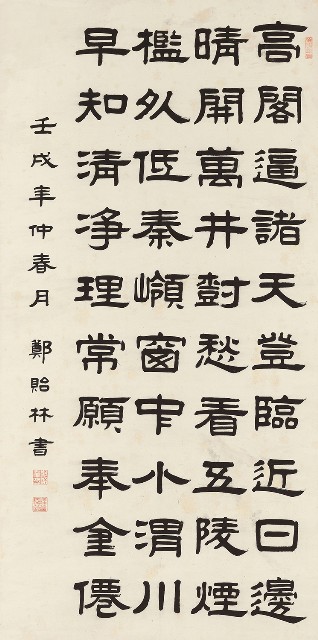 高閣逼諸天登臨近日邊
晴開萬井尌愁看五陵煙
檻外低秦嶺窗中小渭川
早知清净理常願奉金僊
壬戌年仲春月 鄭貽林書